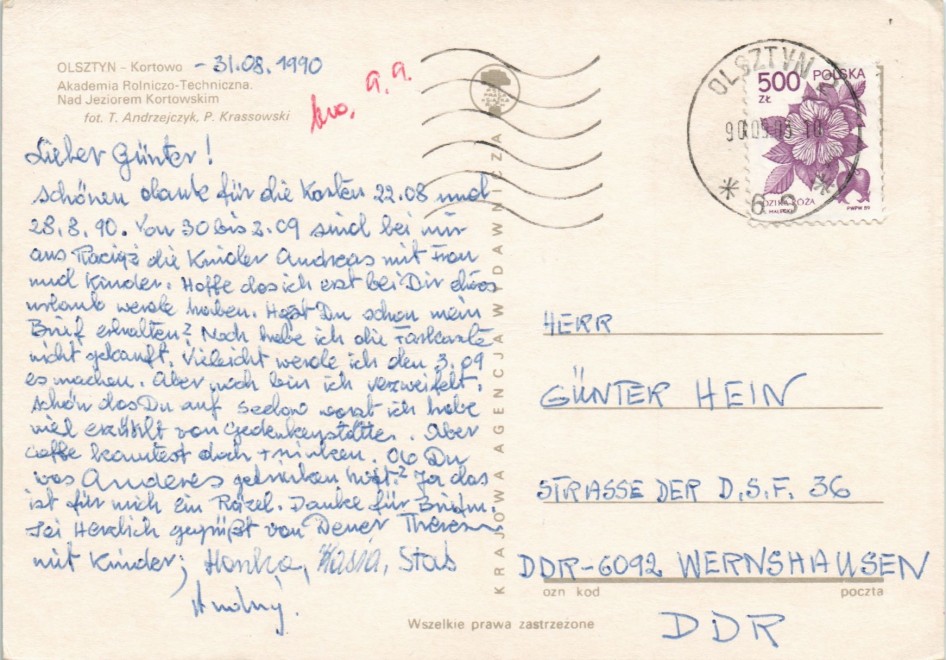 OLSZTYN – Kortowo - 31.08.1990
Akademia Rolniczo-Techniczna.
Nad Jeziorem Kortowskim
fot. T. Andrzejczyk, P. Krassowski
a.a.
Lieber Günter!
schönen danke für die Karten 22.08 und
28.8.90. Von 30 bis 2.09 sind bei mir
aus Raciąż die Kinder Andreas mit Frau
und Kinder. Hoffe das ich erst bei Dir
urlaub werde haben. Hast Du schon mein
Brief erhalten? Noch habe ich die Farkarte
nicht gekauft. Vieleicht werde ich den 3.09
es machen. Aber noch bin ich verzweifelt.
schön das Du auf Seelow ich habe
viel erzählt von Gedenkenstätte. Aber
caffe konntest doch trinken. Ob Du
was Anderes getrinken hast? Ja das
ist für mich ein Räzel. Danke für
Sei Herzlich gegrüßt von Deiner Theresa
mit Kinder; Hanka, Kasia, Staś
Andrzej.
KRAJOWA AGENCJA WYDAWNICZA
OLSZTYN
90.09.03.10
* 6 *
500 ZŁ
POLSKA
DZIKA RÓŻA
PWPW 89
HERR
GÜNTER HEIN
STRASSE DER D.S.F. 36
DDR-6092 WERNSHAUSEN
ozn kod poczta
DDR
Wszelkie prawa zastrzeżone